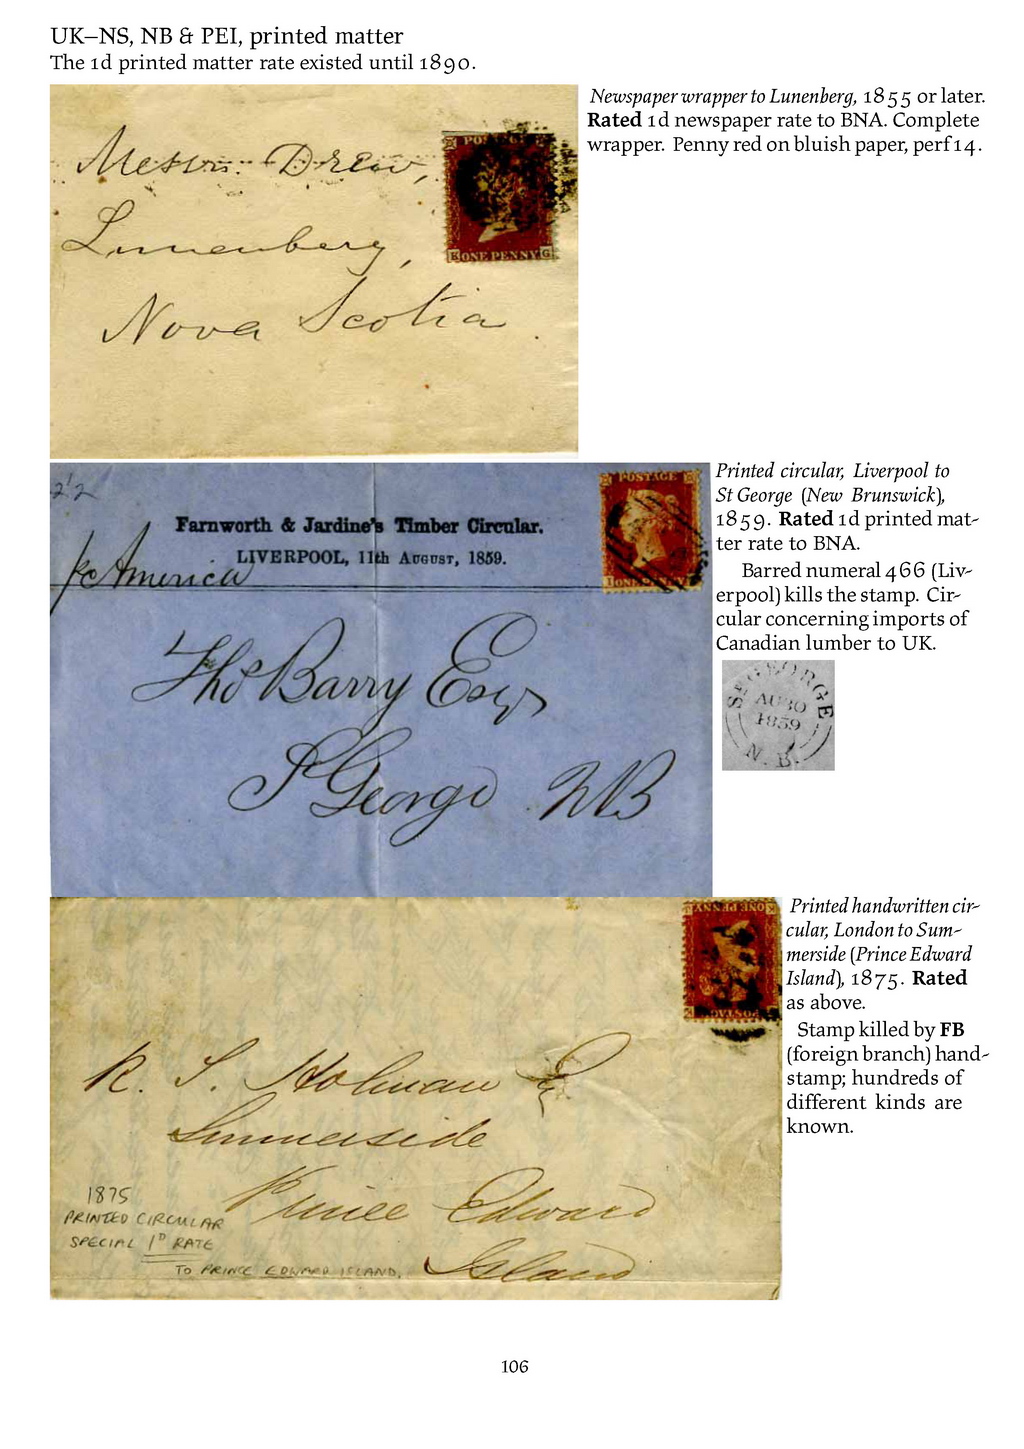 UK–NS, NB & PEI, printed matter
The 1d printed matter rate existed until 1890.
Newspaper wrapper to Lunenberg, 1855 or later.
Rated 1d newspaper rate to BNA. Complete
wrapper. Penny red on bluish paper, perf 14.
Messrs. Drew,
Lunenberg,
Nova Scotia.
POSTAGE
K ONE PENNY G
Printed circular, Liverpool to
St George (New Brunswick),
1859. Rated 1d printed mat-
ter rate to BNA.
Barred numeral 466 (Liv-
erpool) kills the stamp. Cir-
cular concerning imports of
Canadian lumber to UK.
Farnworth & Jardine's Timber Circular.
LIVERPOOL, 11th August, 1859.
pr America
POSTAGE
ONE PENNY
Thos Barry Esqr
St George NB
ST GEORGE
AU 30
1859
N. B.
Printed handwritten cir-
cular, London to Sum-
merside (Prince Edward
Island), 1875. Rated
as above.
Stamp killed by FB
(foreign branch) hand-
stamp; hundreds of
different kinds are
known.
ONE PENNY
POSTAGE
R. T. Holman
Summerside
Prince Edward
Island
1875
PRINTED CIRCULAR
SPECIAL 1D RATE
TO PRINCE EDWARD ISLAND.
106